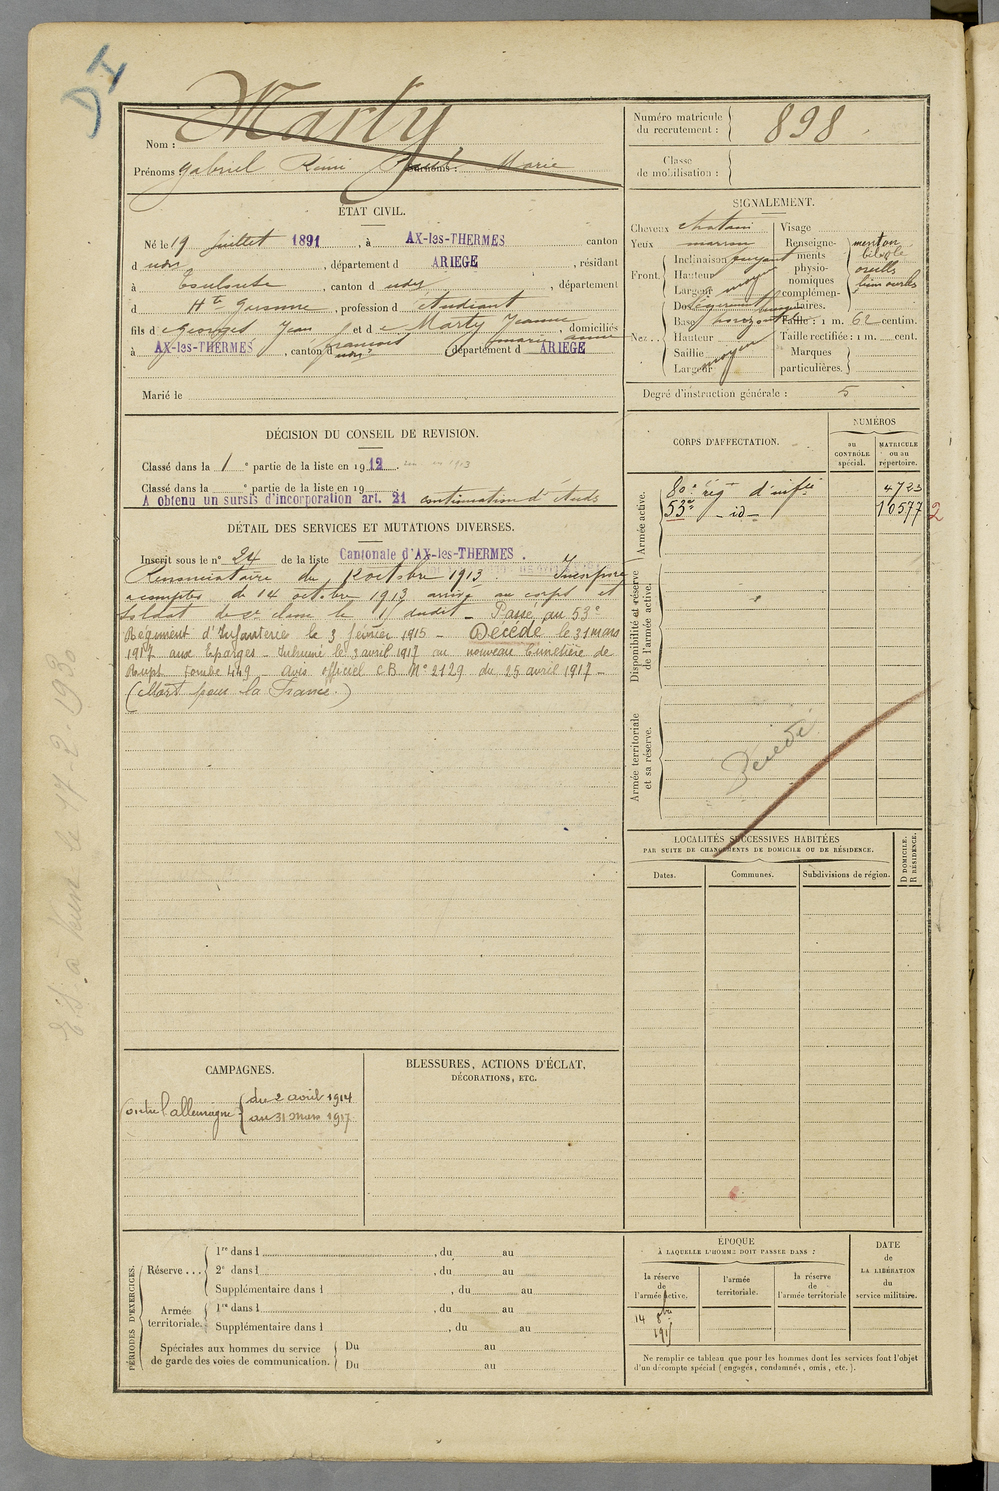 DI
Nom : Marty
Prénoms Gabriel Rémi Paul Marie Surnoms :
Numéro matricule du recrutement : 898
Classe de mobilisation :
ÉTAT CIVIL.
Né le 19 Juillet 1891, à AX-les-THERMES canton
d udit, département d ARIEGE, résidant
à Toulouse, canton d udit, département
d Hte Garonne, profession d Etudiant
fils de Georges Jean François et de Marty Jeanne Marie Anne, domiciliés
à AX-les-THERMES, canton d udit, département d ARIEGE
Marié le
SIGNALEMENT.
Cheveux chatain
Yeux marron
Front. Inclinaison fuyant
Hauteur
Largeur moyen
Nez .. Dos légèrement busqué
Base horizontale
Hauteur
Saillie
Largeur moyen
Visage
Renseignements physionomiques complémentaires. menton bilobé oreilles bien ourlées
Taille : 1 m. 62 centim.
Taille rectifiée : 1 m. cent.
Marques particulières.
Degré d'instruction générale : 5
DÉCISION DU CONSEIL DE REVISION.
Classé dans la 1 e partie de la liste en 1912.
Classé dans la e partie de la liste en 19
A obtenu un sursis d'incorporation art. 21 continuation d'études
DÉTAIL DES SERVICES ET MUTATIONS DIVERSES.
Inscrit sous le n° 24 de la liste Cantonale d'AX-les-THERMES.
Renonciataire du 1 octobre 1913. Incorporé
à compter du 14 octobre 1913 arrivé au corps et
soldat de 2e classe le dudit – Passé au 53e
Régiment d'Infanterie le 3 février 1915 – Décédé le 31 mars
1917 aux Eparges – Inhumé le 3 avril 1917 au nouveau Cimetière de
Rupt Tombe 449 – Avis officiel CB N° 2129 du 25 avril 1917 –
(Mort pour la France.)
CORPS D'AFFECTATION.
NUMÉROS
au CONTRÔLE spécial.
MATRICULE ou au répertoire.
Armée active.
80e rég d'infie 4723
53e – id – 10577 2
Disponibilité et réserve de l'armée active.
Armée territoriale et sa réserve.
Décédé
LOCALITÉS SUCCESSIVES HABITÉES
PAR SUITE DE CHANGEMENTS DE DOMICILE OU DE RÉSIDENCE.
Dates.
Communes.
Subdivisions de région.
D DOMICILE.
R RÉSIDENCE.
CAMPAGNES.
Contre l'allemagne du 2 avril 1914
au 31 Mars 1917
BLESSURES, ACTIONS D'ÉCLAT,
DÉCORATIONS, ETC.
PÉRIODES D'EXERCICES.
Réserve ... 1re dans l , du au
2e dans l , du au
Supplémentaire dans l , du au
Armée territoriale. 1re dans l , du au
Supplémentaire dans l , du au
Spéciales aux hommes du service de garde des voies de communication. Du au
Du au
ÉPOQUE
À LAQUELLE L'HOMME DOIT PASSER DANS :
la réserve de l'armée active.
l'armée territoriale.
la réserve de l'armée territoriale
DATE de LA LIBÉRATION du service militaire.
14 8bre 1915
Ne remplir ce tableau que pour les hommes dont les services font l'objet
d'un décompte spécial (engagés, condamnés, omis, etc.).